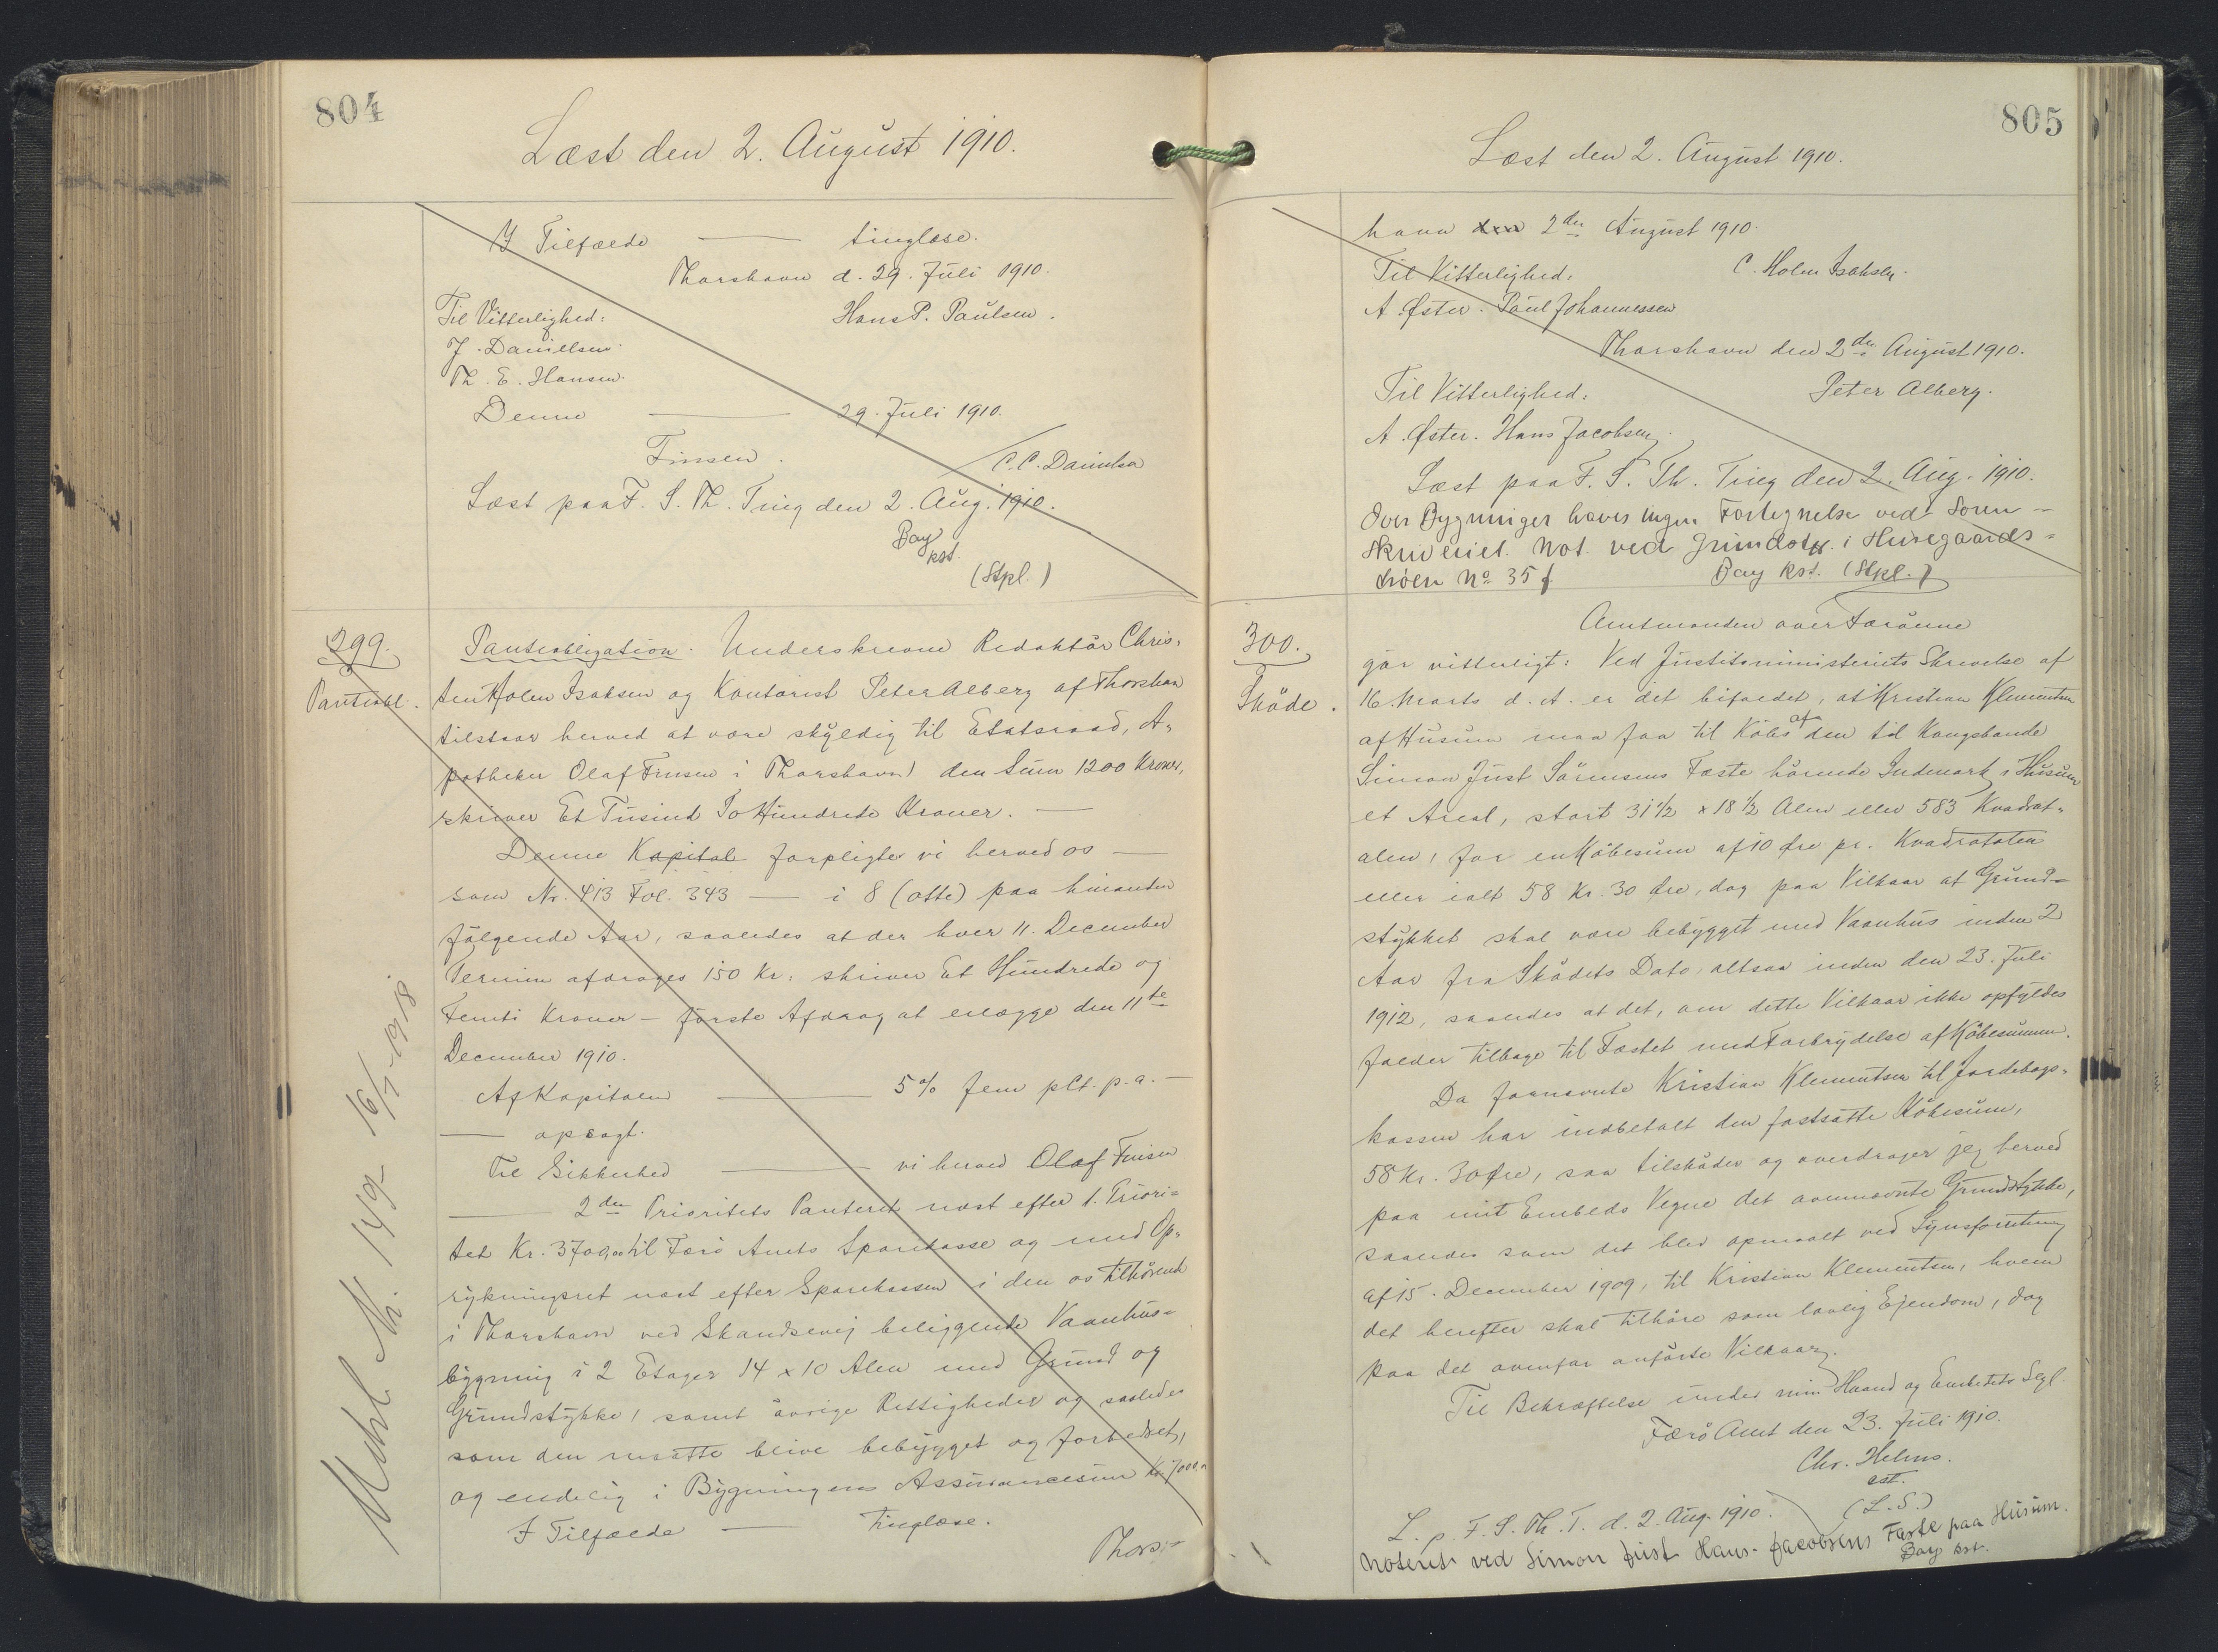 804
Læst den 2. August 1910.
I Tilfælde — tinglæse.
Thorshavn d. 29. Juli 1910.
Til Vitterlighed: Hans P. Paulsen.
J. Danielsen.
Th. E. Hansen.
Denne — 29. Juli 1910.
Finsen.
C.C. Danielsen
Læst paa F. S. Th. Ting den 2. Aug. 1910.
Bay
kst.
(Stpl.)
299.
Pantobl.
Pantobligation. Underskrevne Redaktör Chris-
ten Holm Isaksen og Kontorist Peter Alberg af Thorshavn
tilstaar herved at være skyldig til Etatsraad, A-
potheker Olaf Finsen i Thorshavn, den Sum 1200 Kroner,
skriver Et Tusind To Hundrede Kroner. —
Denne Kapital forpligter vi herved os —
som Nr. 413 Fol. 343 — i 8 (otte) paa hinanden
fölgende Aar, saaledes at der hver 11. December
Termin afdrages 150 Kr. skriver Et Hundrede og
Femti Kroner — förste Afdrag at erlægge den 11te
December 1910.
Af Kapitalen — 5% fem pCt. p.a. —
— opsagt.
Til Sikkerhed — vi herved Olaf Finsen
— 2den Prioritets Panteret næst efter 1. Priori-
tet Kr. 3700,00 til Færö Amts Sparekasse og med Op-
rykningsret næst efter Sparekassen i den os tilhörende
i Thorshavn ved Skandsevej beliggende Vaanhus-
bygning i 2 Etager 14 x 10 Alen med Grund og
Grundstykke, samt övrige Rettigheder og saaledes
som den maatte blive bebygget og forbedret,
og endelig i Bygningens Assurancesum Kr. 7000,00
I Tilfælde — tinglæse.
Thors-
Udsl. Nr. 149 16/1-1918
805
Læst den 2. August 1910.
havn den 2den August 1910.
Til Vitterlighed: C. Holm Isaksen.
A. Øster. Paul Johannessen
Thorshavn den 2den August 1910.
Til Vitterlighed: Peter Alberg.
A. Øster. Hans Jacobsen.
Læst paa F. S. Th. Ting den 2. Aug. 1910.
Over Bygninger haves ingen Fortegnelse ved Soren-
skriveriet. Not. ved Grundst. i Husegaards-
tröen No 35 f Bay kst. (Stpl.)
300.
Sköde.
Amtmanden over Færöerne
gör vitterligt: Ved Justitsministeriets Skrivelse af
16. Marts d. A. er det bifaldet, at Kristian Klementsen
af Husum maa faa til Köbs af den til Kongsbonde
Simon Just Sörensens Fæste hörende Indmark i Husum
et Areal, stort 31 1/2 x 18 1/2 Alen eller 583 Kvadrat-
alen, for en Köbesum af 10 Øre pr. Kvadratalen
eller ialt 58 Kr. 30 Øre, dog paa Vilkaar at Grund-
stykket skal være bebygget med Vaanhus inden 2
Aar fra Sködets Dato, altsaa inden den 23. Juli
1912, saaledes at det, om dette Vilkaar ikke opfyldes
falder tilbage til Fæstet med Forbrydelse af Köbesummen.
Da fornævnte Kristian Klementsen til Jordebogs-
kassen har indbetalt den fastsatte Köbesum,
58 Kr. 30 Øre, saa tilsköder og overdrager jeg herved
paa mit Embeds Vegne det ovennævnte Grundstykke,
saaledes som det blev opmaalt ved Synsforretning
af 15. December 1909, til Kristian Klementsen, hvem
det herefter skal tilhöre som lovlig Ejendom, dog
paa det ovenfor anförte Vilkaar.
Til Bekræftelse under min Haand og Embedets Segl.
Færö Amt den 23. Juli 1910.
Chr. Helms.
cst.
(L.S.)
L. p. F. S. Th. T. d. 2. Aug. 1910.
Noteret ved Simon Just Hans Jacobsens Fæste paa Husum.
Bay kst.